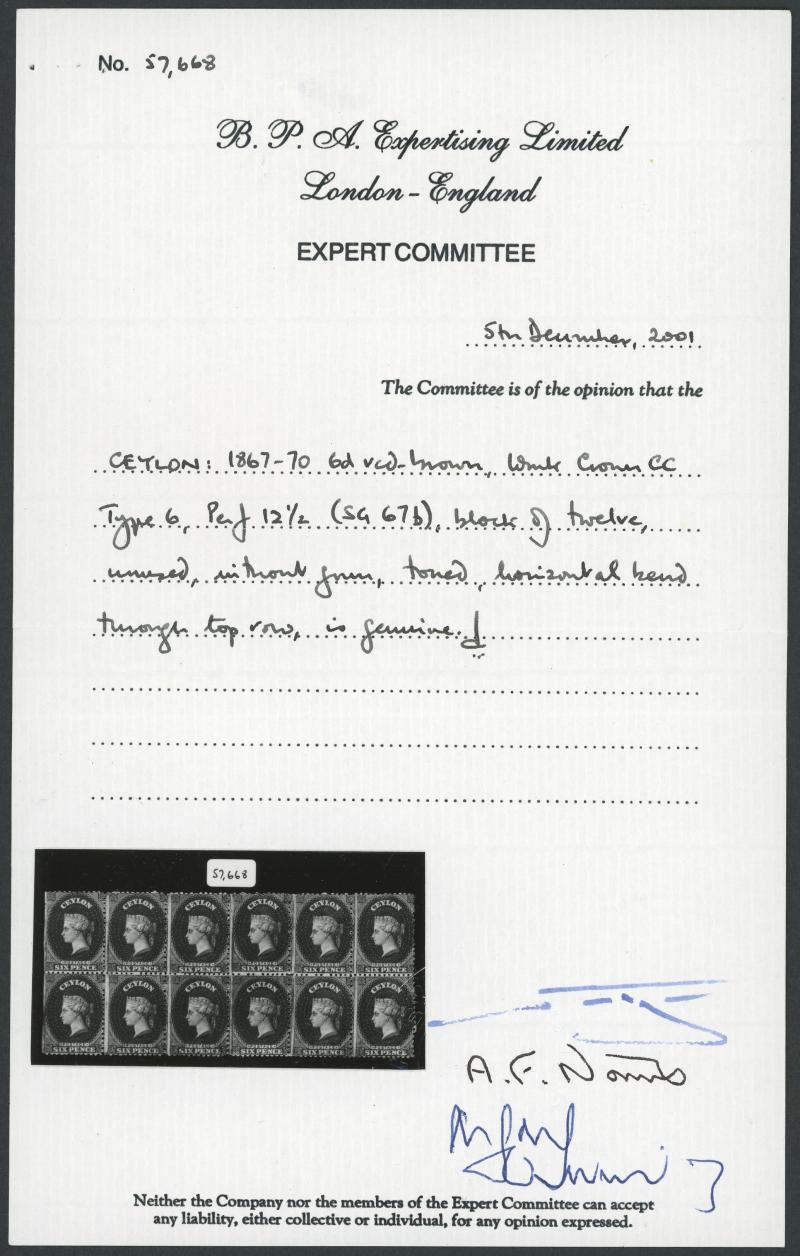 No. 57,668
B. P. A. Expertising Limited
London - England
EXPERT COMMITTEE
5th December, 2001
The Committee is of the opinion that the
CEYLON: 1867-70 6d red-brown, Wmk Crown CC
Type 6, Perf 12½ (SG 67b), block of twelve,
unused, without gum, toned, horizontal bend
through top row, is genuine.
57,668
CEYLON CEYLON CEYLON CEYLON CEYLON CEYLON
POSTAGE POSTAGE POSTAGE POSTAGE POSTAGE POSTAGE
SIX PENCE SIX PENCE SIX PENCE SIX PENCE SIX PENCE SIX PENCE
CEYLON CEYLON CEYLON CEYLON CEYLON CEYLON
POSTAGE POSTAGE POSTAGE POSTAGE POSTAGE POSTAGE
SIX PENCE SIX PENCE SIX PENCE SIX PENCE SIX PENCE SIX PENCE
A. F. Norris
Neither the Company nor the members of the Expert Committee can accept
any liability, either collective or individual, for any opinion expressed.